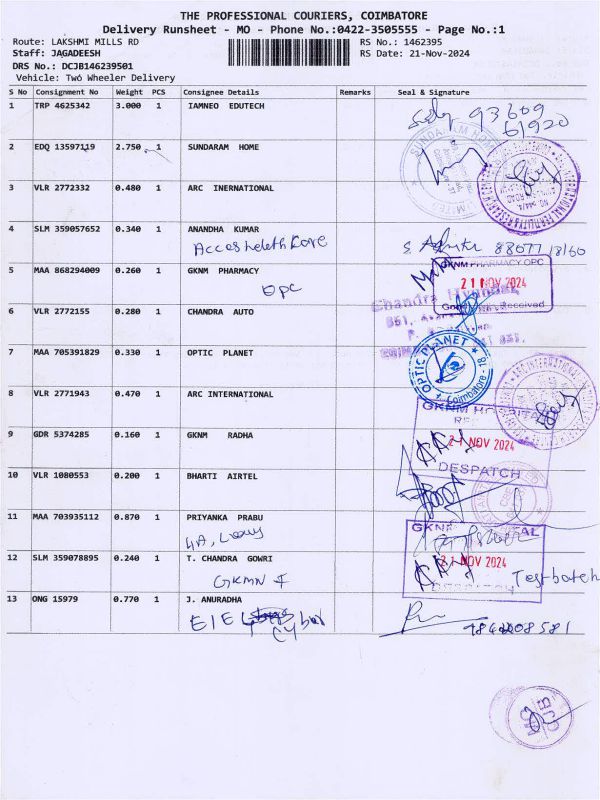 THE PROFESSIONAL COURIERS, COIMBATORE
Delivery Runsheet - MO - Phone No.:0422-3505555 - Page No.:1
Route: LAKSHMI MILLS RD RS No.: 1462395
Staff: JAGADEESH RS Date: 21-Nov-2024
DRS No.: DCJB146239501
Vehicle: Two Wheeler Delivery
S No Consignment No Weight PCS Consignee Details Remarks Seal & Signature
1 TRP 4625342 3.000 1 IAMNEO EDUTECH
93609
61920
2 EDQ 13597119 2.750 1 SUNDARAM HOME
SUNDARAM HOME
3 VLR 2772332 0.480 1 ARC INTERNATIONAL
4 SLM 359057652 0.340 1 ANANDHA KUMAR
5 MAA 868294009 0.260 1 GKNM PHARMACY
OPC
GKNM PHARMACY OPC
21 NOV 2024
Received
6 VLR 2772155 0.280 1 CHANDRA AUTO
Chandra Hyundai
7 MAA 705391829 0.330 1 OPTIC PLANET
OPTIC PLANET
Coimbatore - 18
8 VLR 2771943 0.470 1 ARC INTERNATIONAL
GKNM HOSPITAL
9 GDR 5374285 0.160 1 GKNM RADHA
21 NOV 2024
DESPATCH
10 VLR 1080553 0.200 1 BHARTI AIRTEL
11 MAA 703935112 0.870 1 PRIYANKA PRABU
12 SLM 359078895 0.240 1 T. CHANDRA GOWRI
21 NOV 2024
GKMN
13 ONG 15979 0.770 1 J. ANURADHA